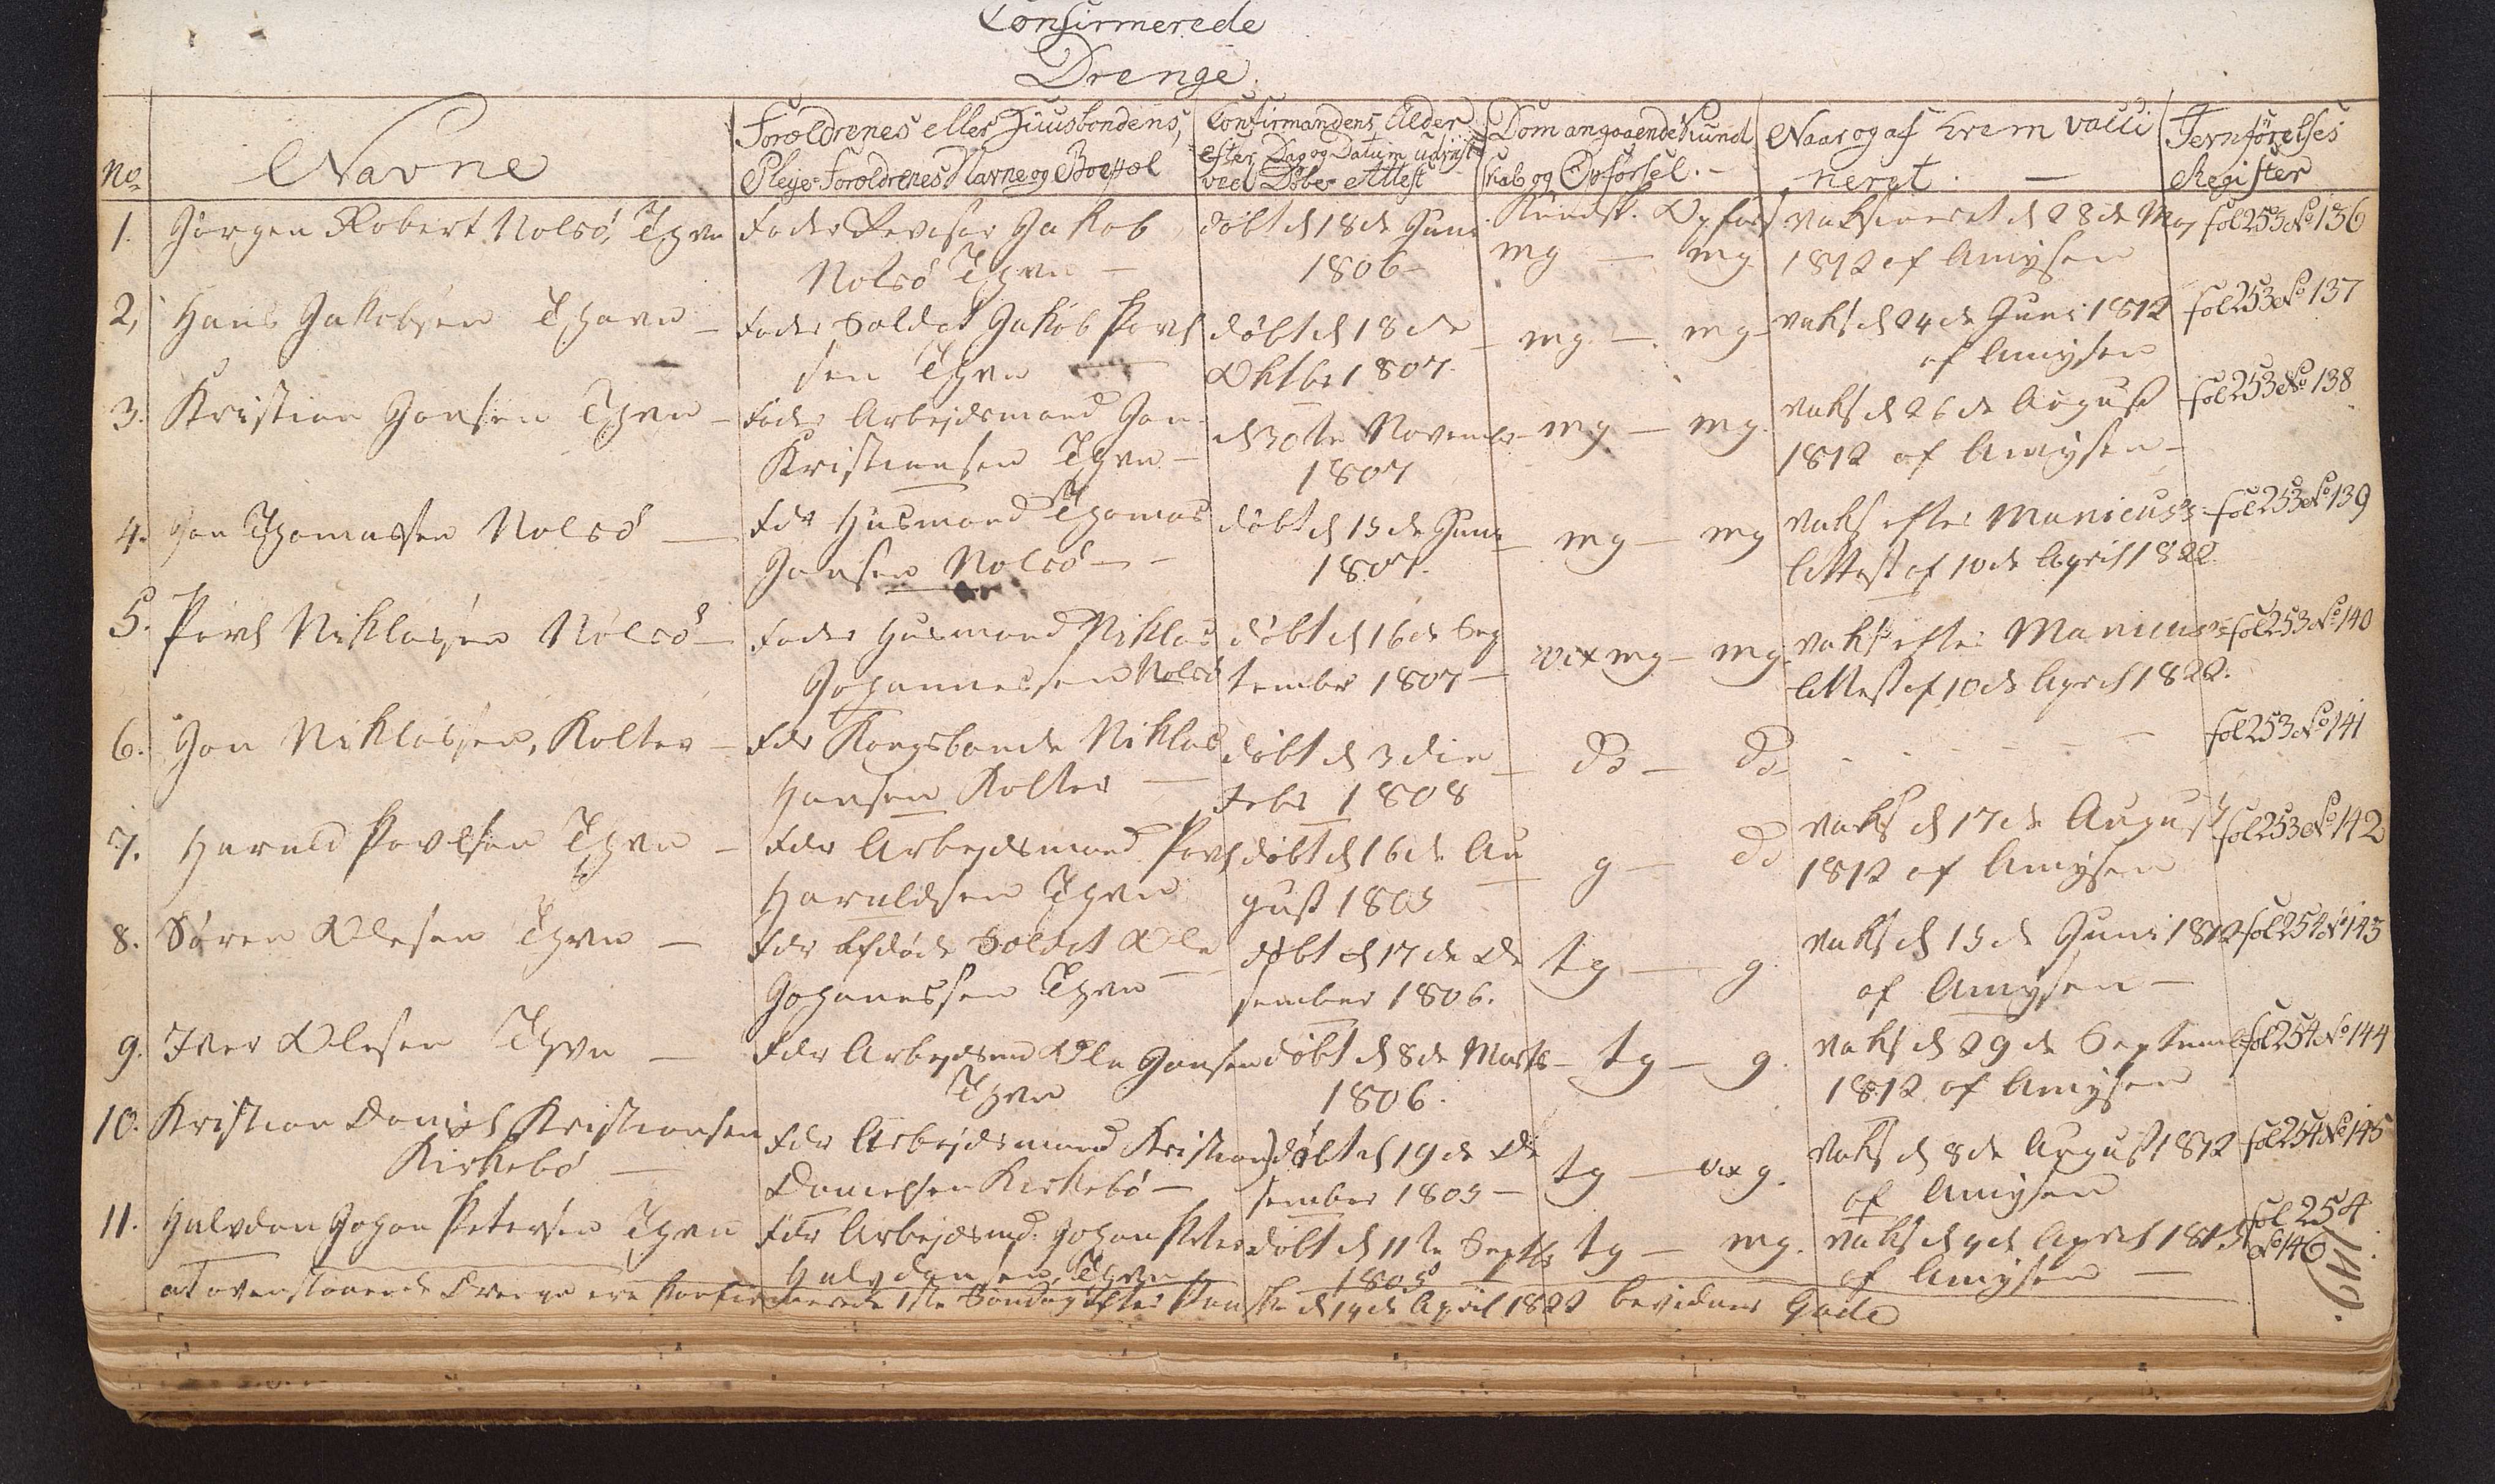 Confirmerede
Drenge.
No
Navne
Forældrenes eller Huusbondens,
Pleje-Forældrenes Navne og Boepæl
Confirmandens Alder
efter Dag og Datum udviist
ved Døbe Attest
Dom angaaende Kund
skab og Opførsel. -
Naar og af hvem vacci
neret. —
Jevnførelses
Register
1. Jörgen Robert Nolsö, Thvn
Fader Revisor Jakob
Nolsö Thvn —
döbt d 18de Juni
1806 -
Kundsk. Opförs
mg — mg
vaksineret d 28de Maj
1812 af Amysen
fol 253 No 136
2, Hans Jakobsen Thavn —
Fader Soldat Jakob Povl
sen Thvn —
döbt d 18de
Oktbr 1807.
— mg — mg
vaks d 24de Juni 1812
af Amysen
fol 253 No 137
3. Kristian Jonsen Thvn —
Fader Arbejdsmand Jon
Kristiansen Thvn —
d 30te Novembr
1807
— mg — mg.
vaks d 26de August
1812 af Amysen —
fol 253 No 138
4. Jon Thomassen Nolsö —
Fdr Husmand Thomas
Jonsen Nolsö —
döbt d 15de Juni
1807.
— mg — mg
vaks efter Manicus's
Attest af 10de April 1822
fol 253 No 139
5. Povl Niklassen Nolsö —
Fader Husmand Niklas
Johannessen Nolsö
döbt d 16de Sep
tember 1807 —
vix mg — mg
vaks efter Manicus's
Attest af 10de April 1822.
fol 253 No 140
6. Jon Niklassen, Kolter —
Fdr Kongsbonde Niklas
Hansen Kolter —
döbt d 3die
Febr 1808
— do — do
- - - - - -
fol 253 No 141
7. Harald Povelsen Thvn —
Fdr Arbejdsmand Povl
Haraldsen Thvn
döbt d 16de Au
gust 1805
— g — do
vaks d 17de August
1812 af Amysen
fol 253 No 142
8. Sören Olesen Thvn —
Fdr afdöde Soldat Ole
Johannessen Thvn —
döbt d 17de De
sember 1806.
tg — g
vaks d 15de Juni 1812
af Amysen —
fol 254 No 143
9. Iver Olesen Thvn —
Fdr Arbejdsmd Ole Jonsen
Thvn
döbt d 8de Marts
1806.
— tg — g.
vaks d 29de Septemb
1812 af Amysen
fol 254 No 144
10. Kristian Daniel Kristiansen
Kirkebö —
Fdr Arbejdsmand Kristian
Danielsen Kirkebö —
döbt d 19de De
sember 1805 —
tg — vix g.
vaks d 8de August 1812
af Amysen
fol 254 No 145
11. Halvdan Johan Petersen Thvn
Fdr Arbejdsmd. Johan Peter
Halvdansen, Thvn
döbt d 11te Septbr
1805
tg — mg.
vaks d 4de April
af Amysen —
fol 254
No 146
at ovenstaaende Drenge ere konfirmerede 1ste Söndag efter Paaske d 14de April 1822 bevidner Gade